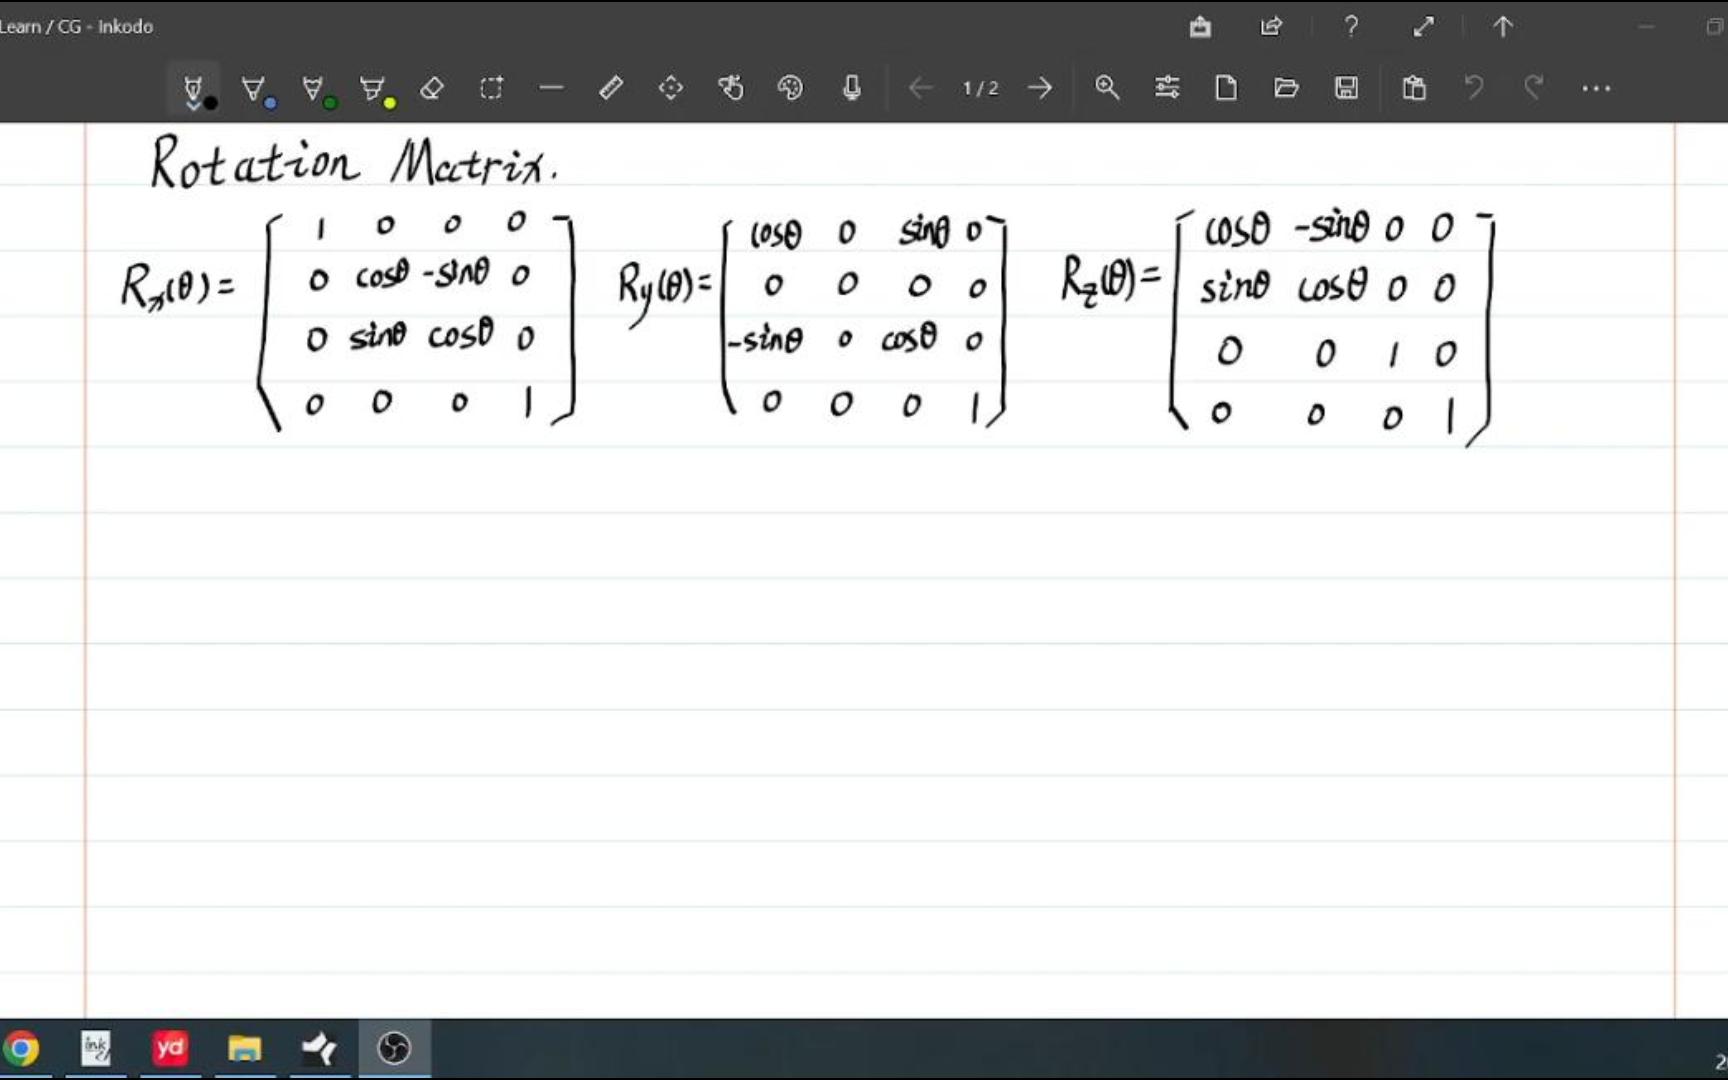 Learn / CG - Inkodo
1 / 2
Rotation Matrix.
1 0 0 0
Rx(θ) = 0 cosθ -sinθ 0
0 sinθ cosθ 0
0 0 0 1
cosθ 0 sinθ 0
Ry(θ) = 0 0 0 0
-sinθ 0 cosθ 0
0 0 0 1
cosθ -sinθ 0 0
Rz(θ) = sinθ cosθ 0 0
0 0 1 0
0 0 0 1
ink
yd
2